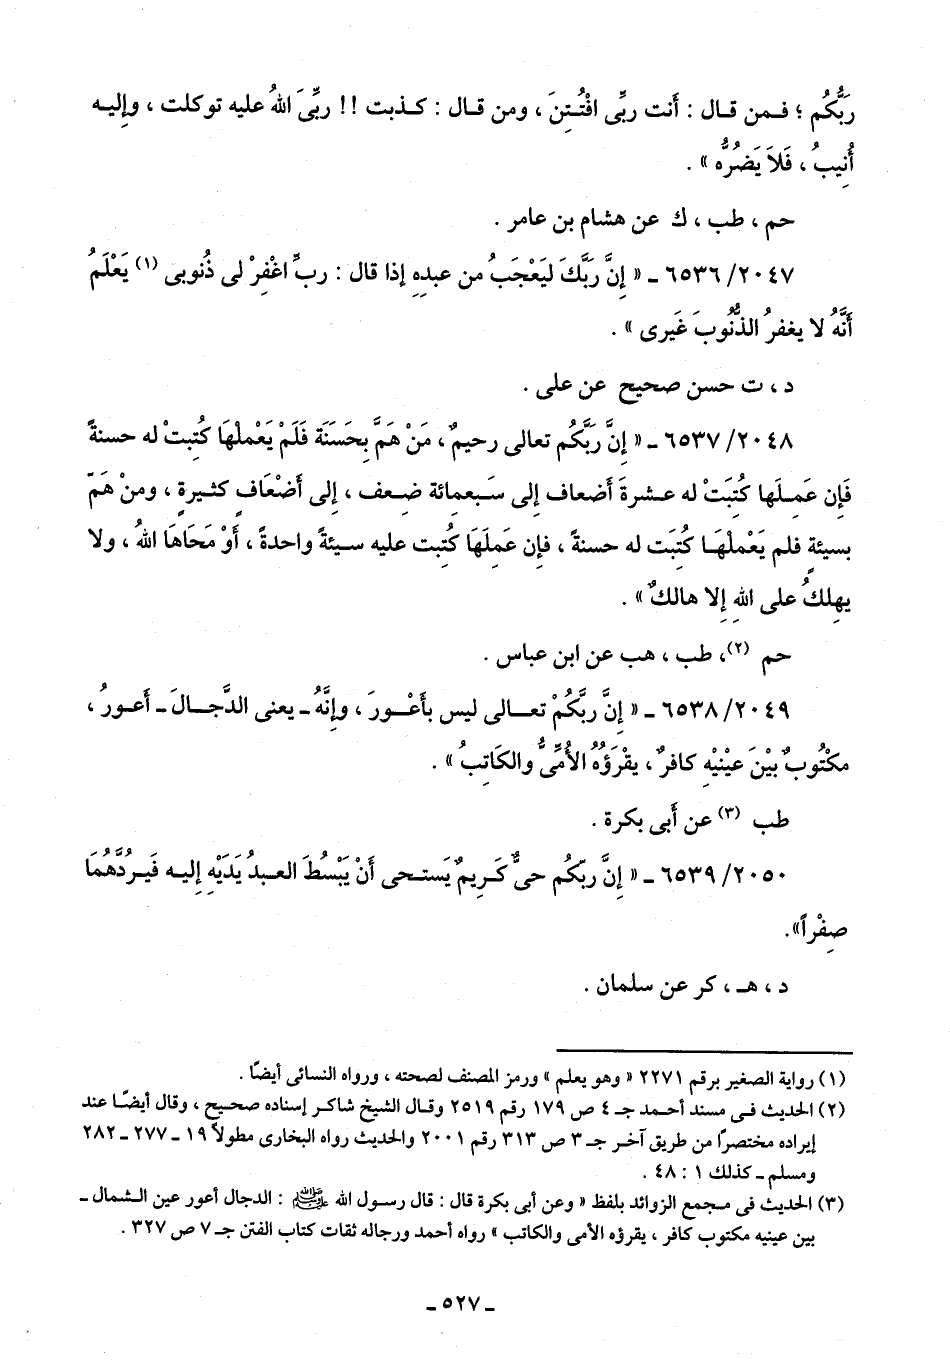 رَبُّكُم ؛ فـمن قـال : أنت ربِّى افْتُـتِنَ ، ومن قال : كـذبت !! ربِّىَ اللهُ عليه توكلت ، وإليـه
أُنِيبُ ، فَلاَ يَضُرُّه » .
حم ، طب ، ك عن هشام بن عامر .
٦٥٣٦/٢٠٤٧ ـ « إِنَّ رَبَّكَ لَيَعْجَبُ من عبدِهِ إذا قال : ربِّ اغْفِرْ لى ذُنوبى (١) يَعْلَمُ
أنَّهُ لا يغفرُ الذُّنُوبَ غَيرى » .
د ، ت حسن صحيح عن على .
٦٥٣٧/٢٠٤٨ ـ « إِنَّ رَبَّكُم تعالى رحيمٌ ، مَنْ هَمَّ بِحَسَنَة فَلَمْ يَعْملْهَا كُتِبتْ له حسنةً
فَإِن عَمِـلَها كُتِبَتْ له عـشرةَ أضعاف إلى سَـبعمائة ضِـعف ، إلى أضْعَاف كـثيرةٍ ، ومنْ هَمَّ
بسيئةٍ فلم يَعْملْهَـا كُتِبَت له حسنةً ، فإن عَمِلَهَا كُتِبت عليه سـيئةً واحدةً ، أوْ مَحَاهَا اللهُ ، ولا
يهلِكُ على اللهِ إِلا هالكٌ » .
حم (٢)، طب ، هب عن ابن عباس .
٦٥٣٨/٢٠٤٩ ـ « إِنَّ رَبَّكُمْ تعـالى ليس بأَعْـورَ ، وإِنَّهُ ـ يعنى الدَّجـالَ ـ أَعورُ ،
مكْتُوبٌ بيْنَ عيْنيْهِ كافرٌ ، يقْرَؤُهُ الأُمِّىُّ والكَاتِبُ » .
طب (٣) عن أبى بكرة .
٦٥٣٩/٢٠٥٠ ـ « إِنَّ ربّكُم حىٌّ كَـرِيمٌ يَستـحى أَنْ يَبْسُطَ العـبدُ يَدَيْهِ إليـه فَيـرُدَّهُمَا
صِفْراً».
د ، هـ ، كر عن سلمان .
(١) رواية الصغير برقم ٢٢٧١ « وهو يعلم » ورمز المصنف لصحته ، ورواه النسائى أيضًا .
(٢) الحديث فـى مسند أحـمد جـ ٤ ص ١٧٩ رقم ٢٥١٩ وقـال الشيخ شاكـر إسناده صحيـح ، وقال أيضًـا عند
إيراده مختصرًا من طريق آخـر جـ ٣ ص ٣١٣ رقم ٢٠٠١ والحديث رواه البخارى مطولاً ١٩ ـ ٢٧٧ ـ ٢٨٢
ومسلم ـ كذلك ١ : ٤٨ .
(٣) الحديث فى مـجمع الزوائد بلفظ « وعن أبى بكرة قال : قال رسول الله ﷺ : الدجال أعور عين الـشمال ـ
بين عينيه مكتوب كافر ، يقرؤه الأمى والكاتب » رواه أحمد ورجاله ثقات كتاب الفتن جـ ٧ ص ٣٢٧ .
ـ ٥٢٧ ـ